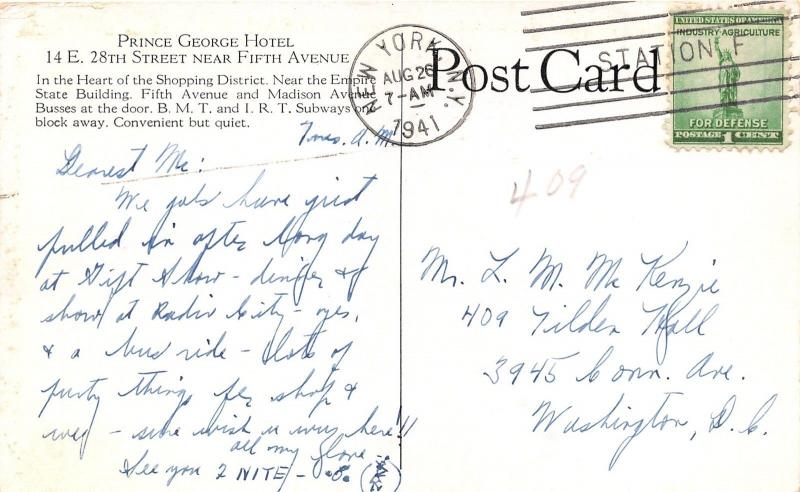 PRINCE GEORGE HOTEL
14 E. 28TH STREET NEAR FIFTH AVENUE
In the Heart of the Shopping District. Near the Empire
State Building. Fifth Avenue and Madison Avenue
Busses at the door. B. M. T. and I. R. T. Subways one
block away. Convenient but quiet.
Post Card
NEW YORK, N.Y.
AUG 26
7-AM
1941
STATION F
UNITED STATES OF AMERICA
INDUSTRY-AGRICULTURE
FOR DEFENSE
POSTAGE 1 CENT
A.M.
Dearest Mc:
We gals have just
pulled in after long day
at Gift Show - dinner &
show at Radio City - yes,
& a bus ride - Lots of
purty things fer shop &
me - sure wish u wuz here!!
all my love -
See you 2 NITE -
409
Mr. L. M. McKenzie
409 Tilden Hall
3945 Conn. Ave.
Washington, D.C.